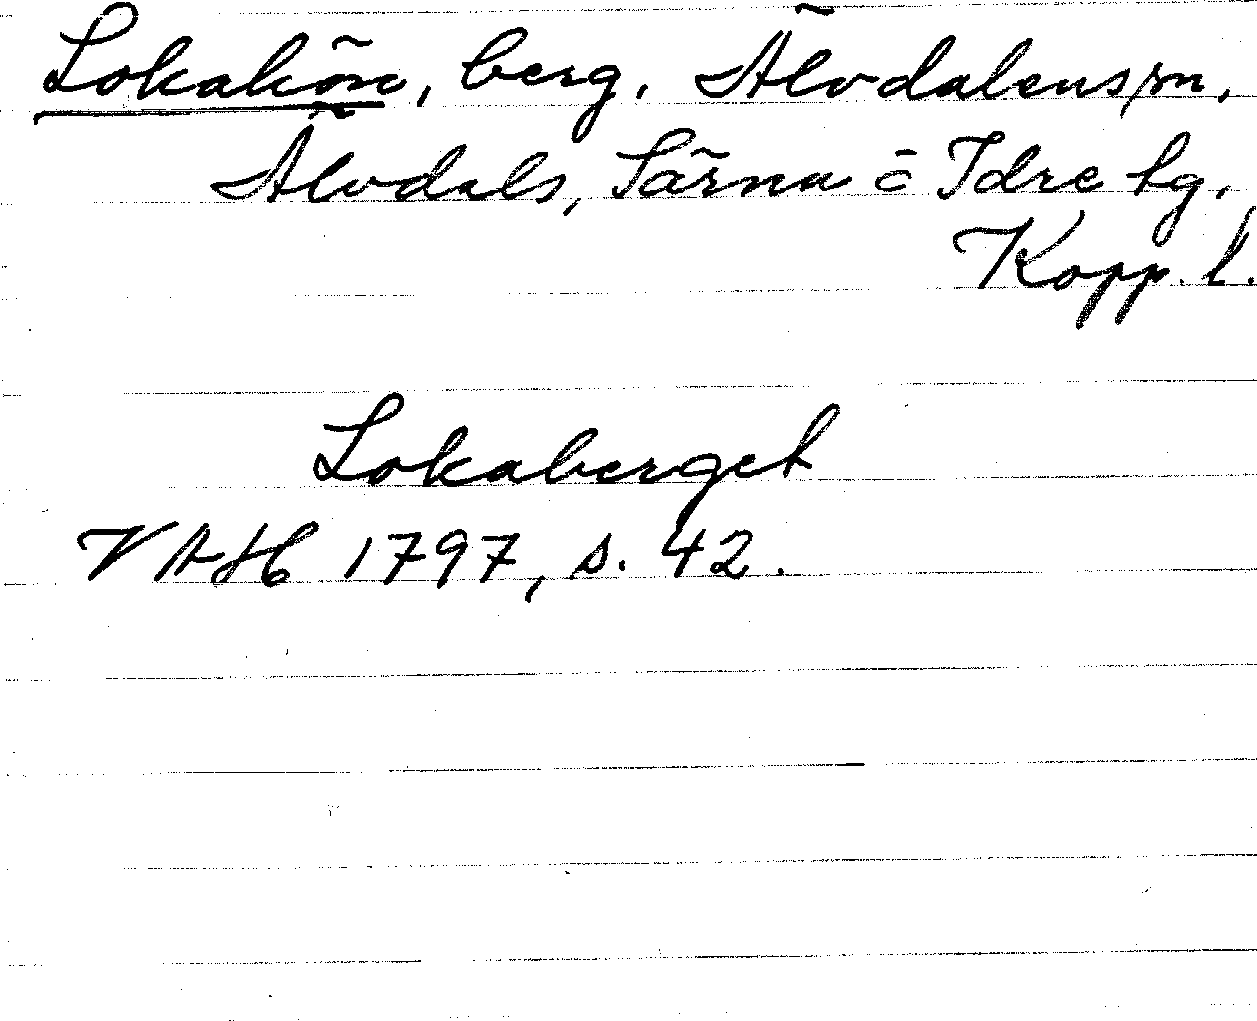 Lokakön, berg, Älvdalens sn,
Älvdals, Särna o Idre tg,
Kopp. l.
Lokaberget
VAH 1797, s. 42.